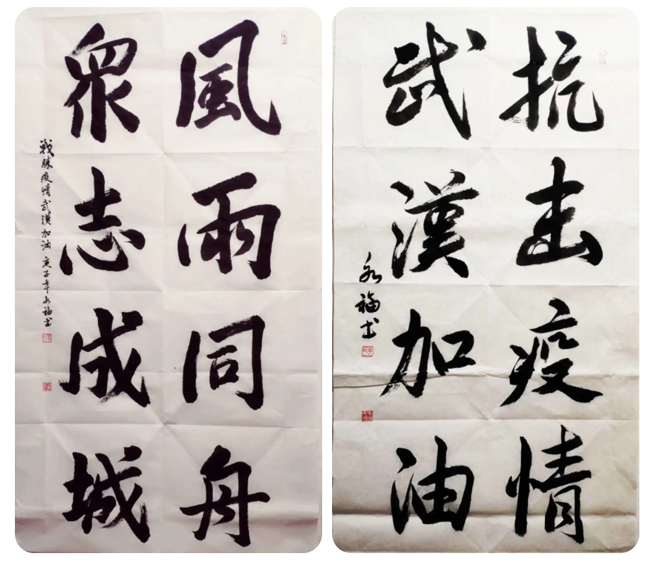 風雨同舟
衆志成城
戰勝疫情武漢加油 庚子年永福書
抗击疫情
武漢加油
永福书